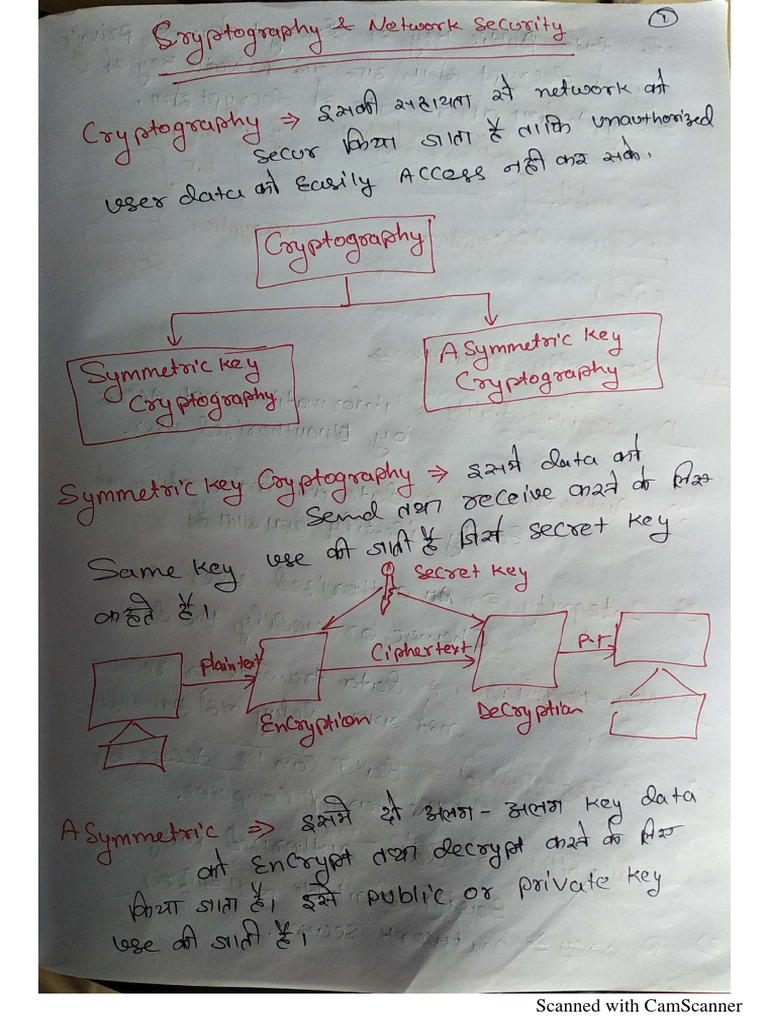 Cryptography & Network Security
1
Cryptography ⇒ इसकी सहायता से network को
secur किया जाता है ताकि unauthorized
user data को Easily Access नही कर सके.
Cryptography
Symmetric key
Cryptography
ASymmetric key
Cryptography
Symmetric key Cryptography ⇒ इसमे data को
Send तथा receive करने के लिए
Same key use की जाती है जिसे secret key
कहते है।
Secret key
Plaintext
Ciphertext
P.T
Encryption
Decryption
ASymmetric ⇒ इसमे दो अलग-अलग key data
को Encrypt तथा decrypt करने के लिए
किया जाता है। इसे public or private key
use की जाती है।
Scanned with CamScanner